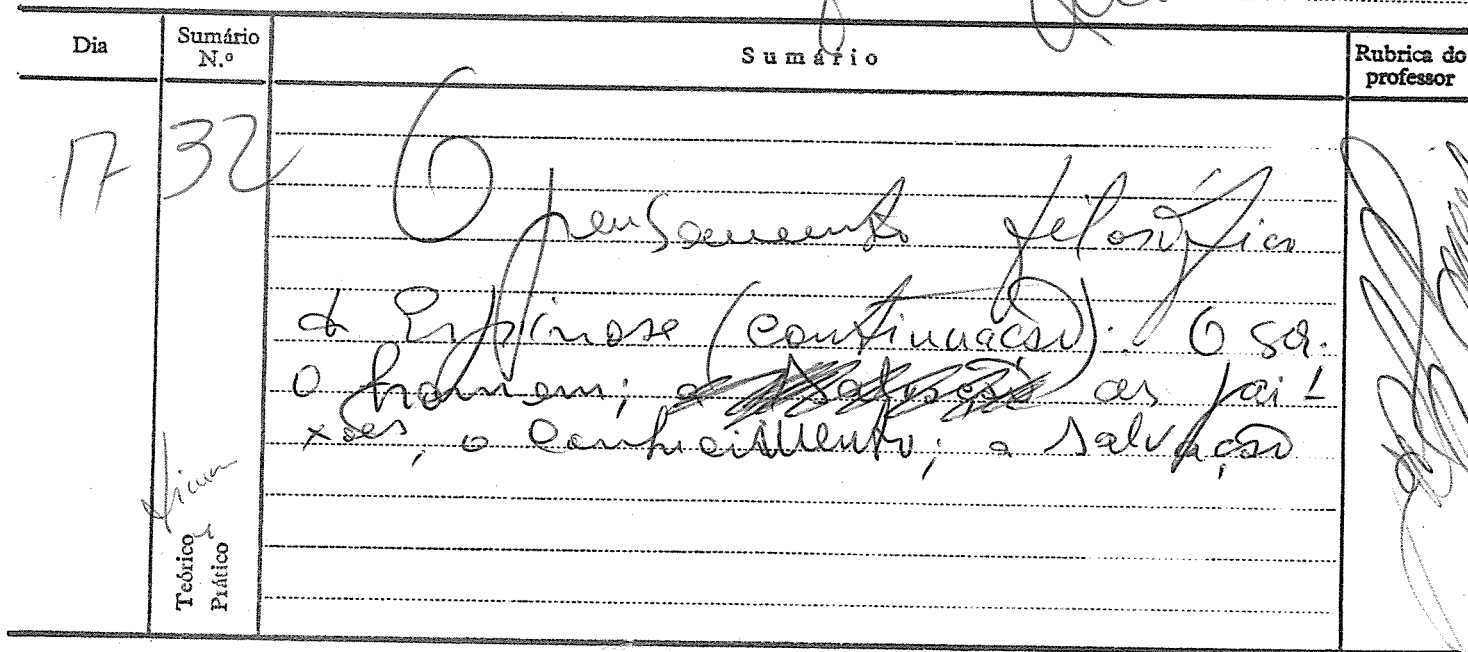 Dia
Sumário N.º
Sumário
Rubrica do professor
17 32
O pensamento filosófico
de Espinosa (continuação). O ser.
O homem; as pai-
xões; o conhecimento; a salvação
Teórico
Prático